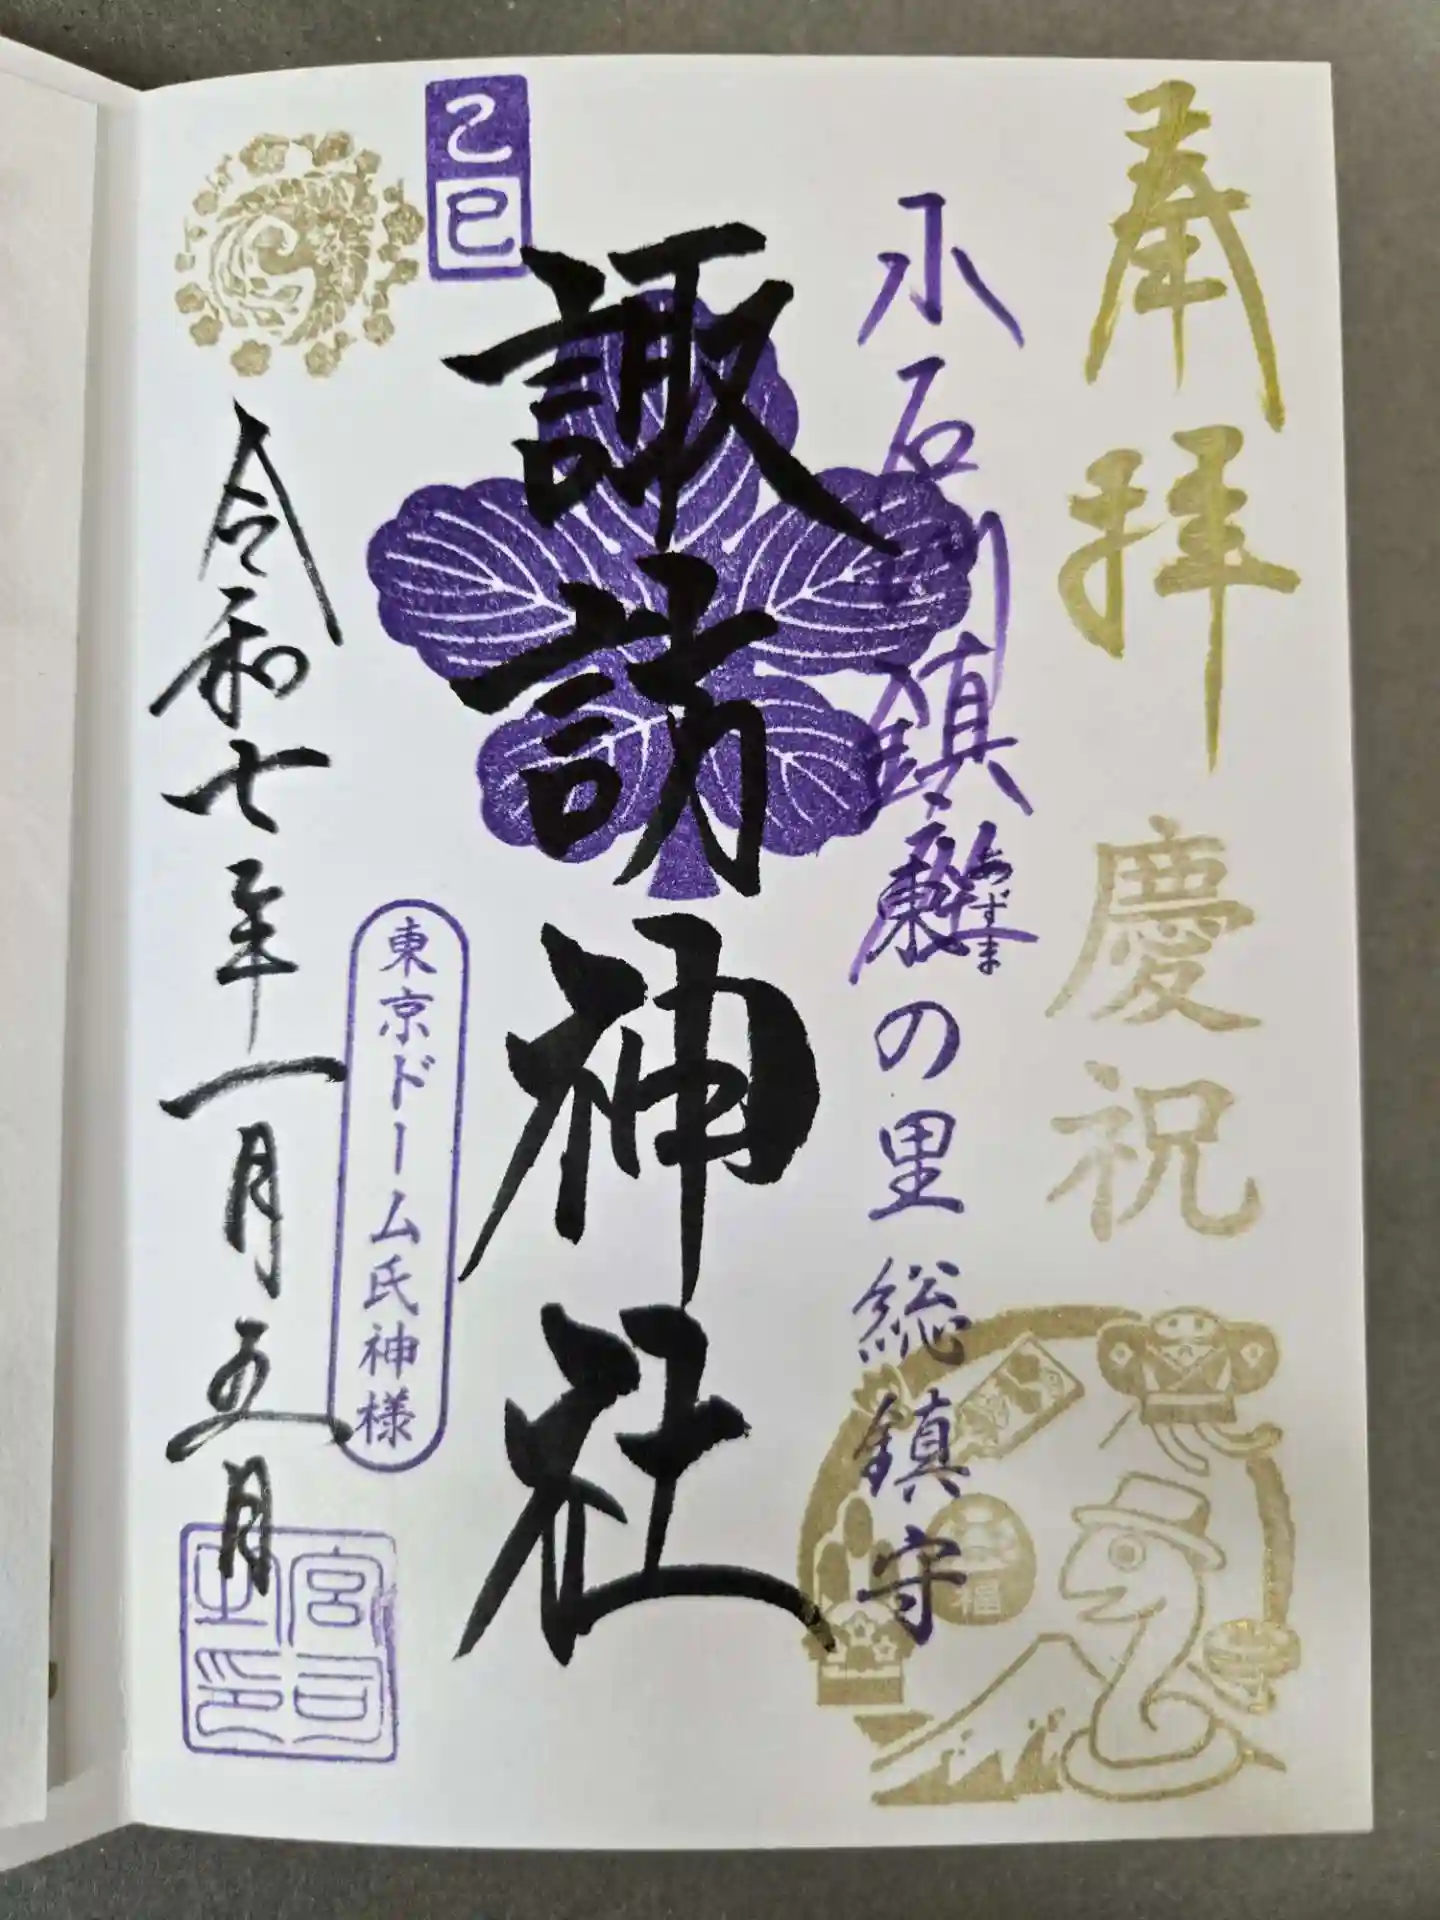 奉拝
慶祝
福
小石川鎮座
あずま
東の里総鎮守
諏訪神社
乙巳
東京ドーム氏神様
令和七年一月五日
宮司之印